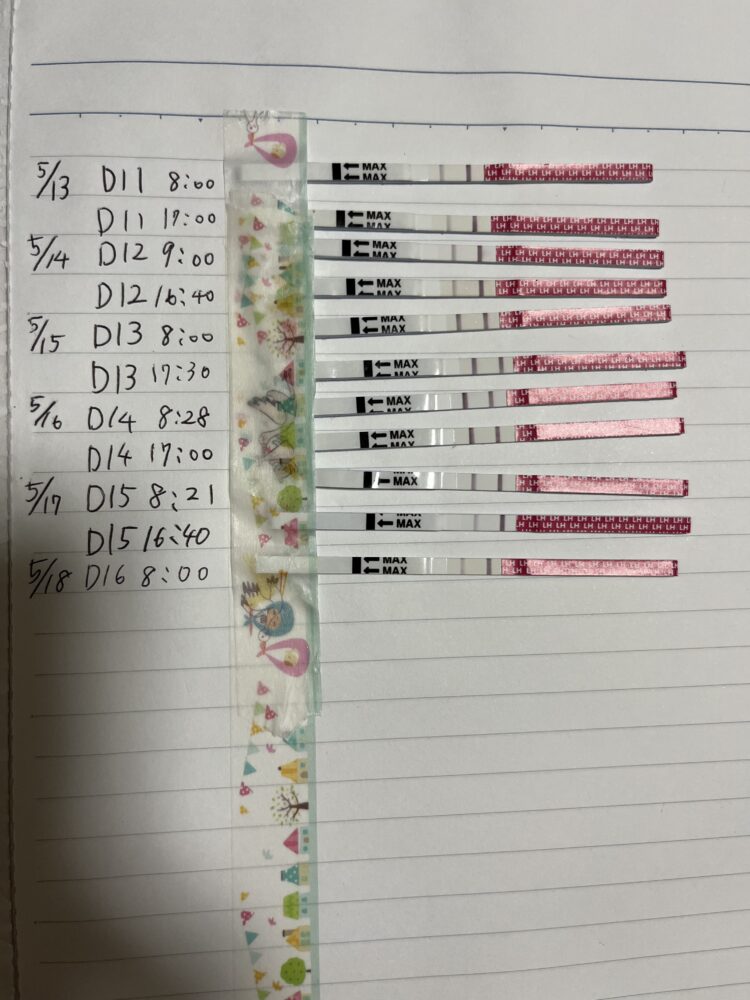 5/13 D11 8:00 ← MAX ← MAX LH LH LH LH LH LH LH LH
D11 17:00 ← MAX ← MAX LH LH LH LH LH LH LH LH
5/14 D12 9:00 ← MAX ← MAX LH LH LH LH LH LH LH LH
D12 16:40 ← MAX ← MAX LH LH LH LH LH LH LH LH
5/15 D13 8:00 ← MAX ← MAX LH LH LH
D13 17:30 ← MAX ← MAX LH LH LH LH LH LH LH LH
5/16 D14 8:28 ← MAX ← MAX LH LH
D14 17:00 ← MAX ← MAX LH
5/17 D15 8:21 ← MAX LH LH
D15 16:40 ← MAX LH LH LH LH LH LH LH LH
5/18 D16 8:00 ← MAX ← MAX LH LH LH